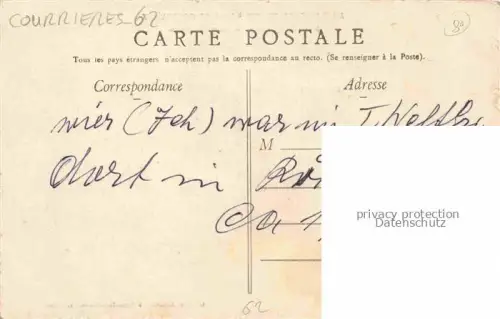 COURRIERES 62
80
CARTE POSTALE
Tous les pays étrangers n'acceptent pas la correspondance au recto. (Se renseigner à la Poste).
Correspondance
Adresse
wier (Ich) war im I Weltk
M
dort in
Ca
privacy protection
Datenschutz
62